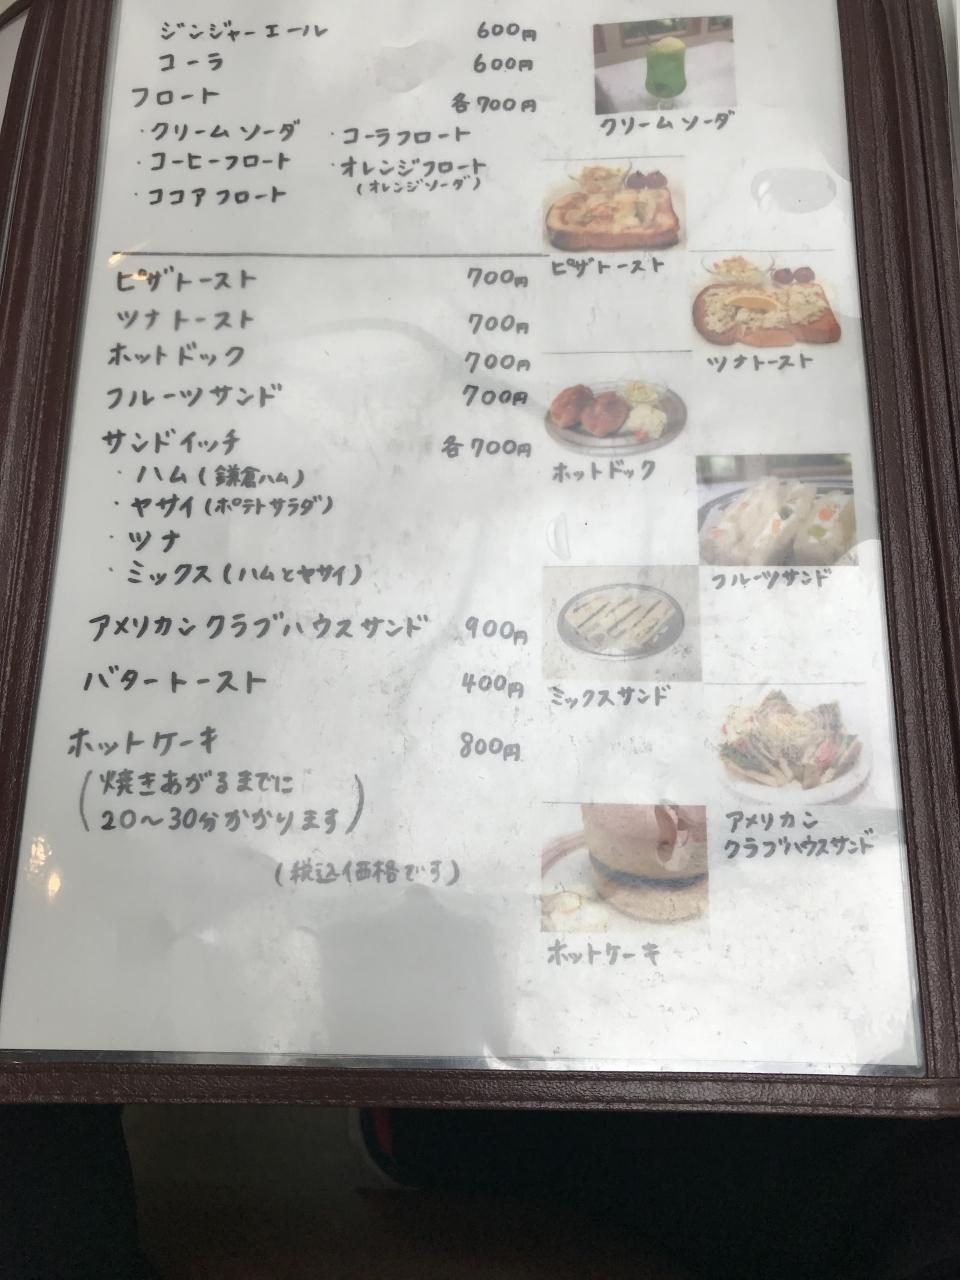 ジンジャーエール 600円
コーラ 600円
フロート 各700円
・クリームソーダ ・コーラフロート
・コーヒーフロート ・オレンジフロート
(オレンジソーダ)
・ココアフロート
クリームソーダ
ピザトースト 700円
ピザトースト
ツナトースト 700円
ツナトースト
ホットドック 700円
フルーツサンド 700円
サンドイッチ 各700円
・ハム(鎌倉ハム)
・ヤサイ(ポテトサラダ)
・ツナ
・ミックス(ハムとヤサイ)
ホットドック
フルーツサンド
アメリカンクラブハウスサンド 900円
バタートースト 400円
ミックスサンド
ホットケーキ 800円
(焼きあがるまでに
20～30分かかります)
(税込価格です)
アメリカン
クラブハウスサンド
ホットケーキ